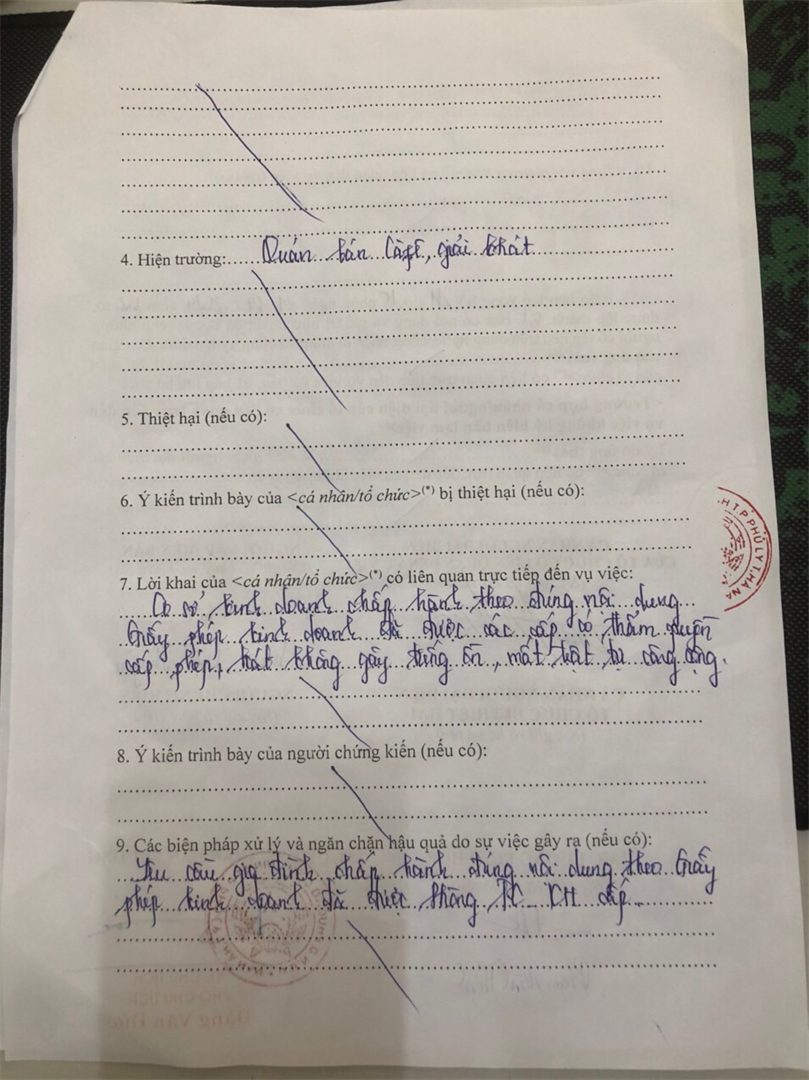 4. Hiện trường:..... Quán bán Càfê, giải khát
5. Thiệt hại (nếu có):
6. Ý kiến trình bày của <cá nhân/tổ chức>(*) bị thiệt hại (nếu có):
H T.P PHỦ LÝ T. HÀ NA
7. Lời khai của <cá nhân/tổ chức>(*) có liên quan trực tiếp đến vụ việc:
Cơ sở kinh doanh chấp hành theo đúng nội dung
Giấy phép kinh doanh đã được các cấp có thẩm quyền
cấp phép, hát không gây tiếng ồn, mất trật tự công cộng.
8. Ý kiến trình bày của người chứng kiến (nếu có):
9. Các biện pháp xử lý và ngăn chặn hậu quả do sự việc gây ra (nếu có):
Yêu cầu gia đình chấp hành đúng nội dung theo Giấy
phép kinh doanh đã được Phòng TC KH cấp